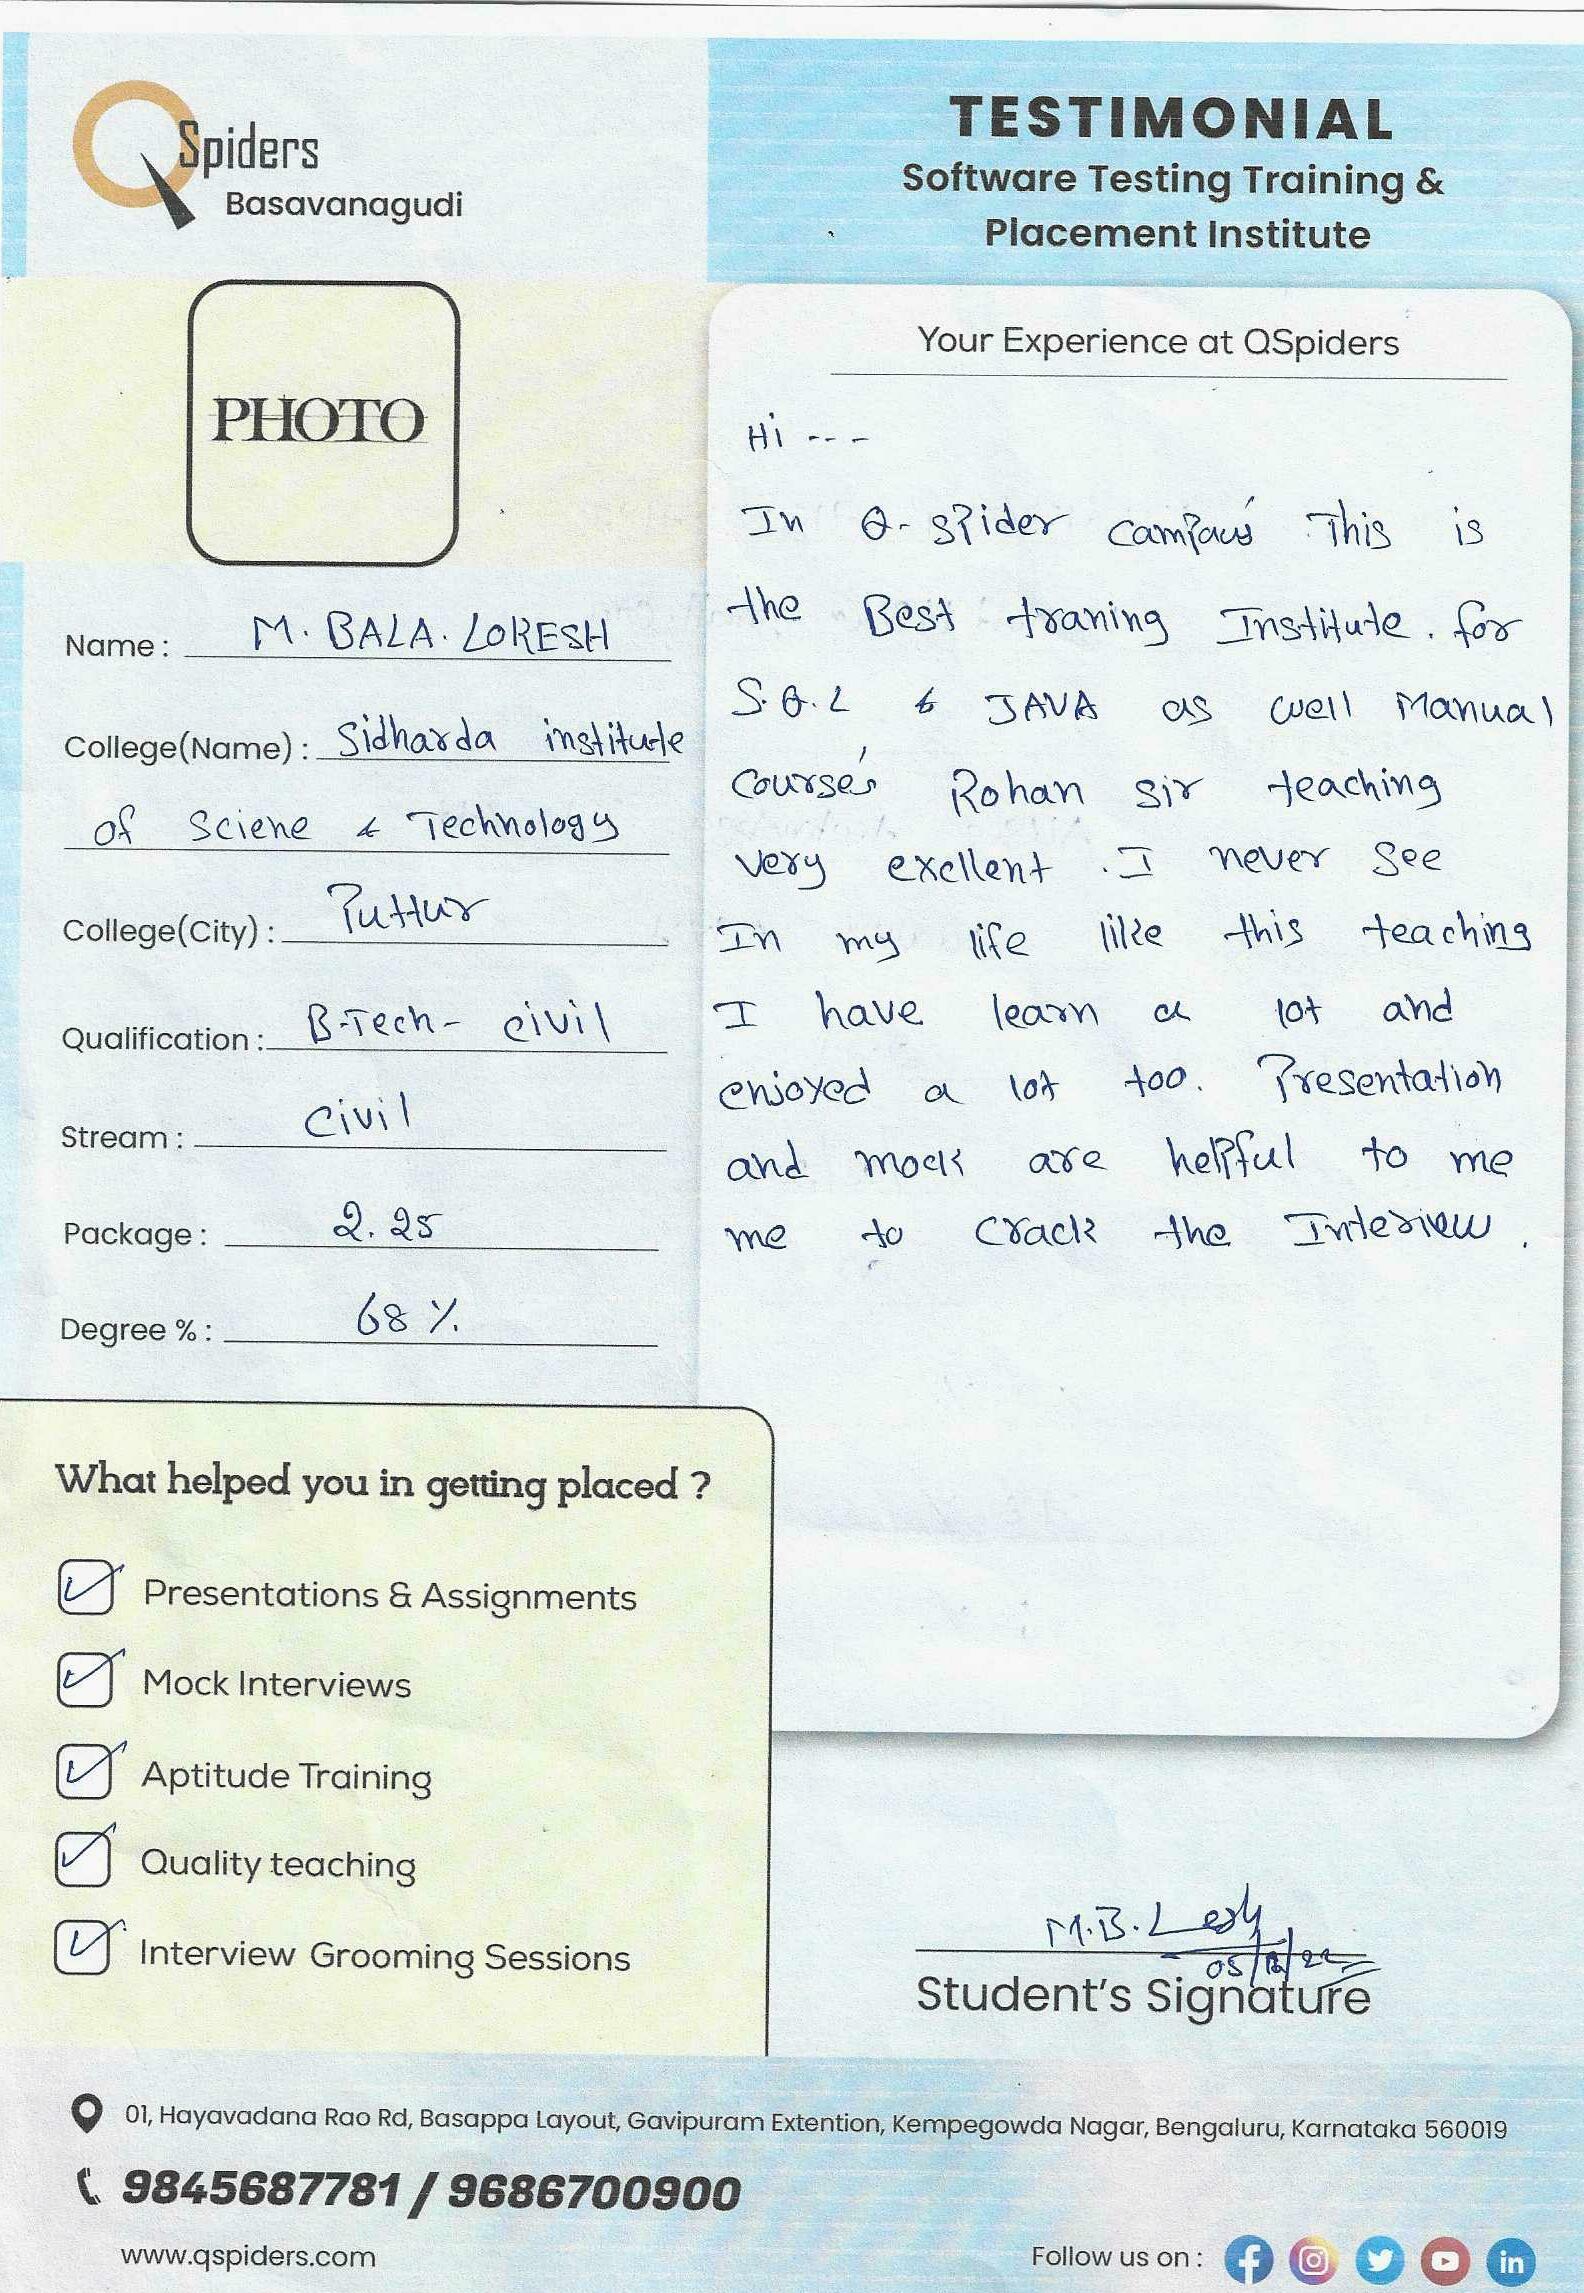 QSpiders
Basavanagudi
TESTIMONIAL
Software Testing Training &
Placement Institute
PHOTO
Name : M. BALA. LOKESH
College(Name) : Sidharda institute
of Sciene & Technology
College(City) : Puttur
Qualification : B-Tech- civil
Stream : civil
Package : 2.25
Degree % : 68 %
Your Experience at QSpiders
Hi ---
In Q- spider campus This is
the Best traning Institute. for
S.Q.L & JAVA as well Manual
course's Rohan sir teaching
very exellent. I never see
In my life like this teaching
I have learn a lot and
enjoyed a lot too. Presentation
and mock are helpful to me
me to crack the Interview.
What helped you in getting placed ?
Presentations & Assignments
Mock Interviews
Aptitude Training
Quality teaching
Interview Grooming Sessions
M.B.L
05/12/22
Student's Signature
01, Hayavadana Rao Rd, Basappa Layout, Gavipuram Extention, Kempegowda Nagar, Bengaluru, Karnataka 560019
9845687781 / 9686700900
www.qspiders.com
Follow us on :